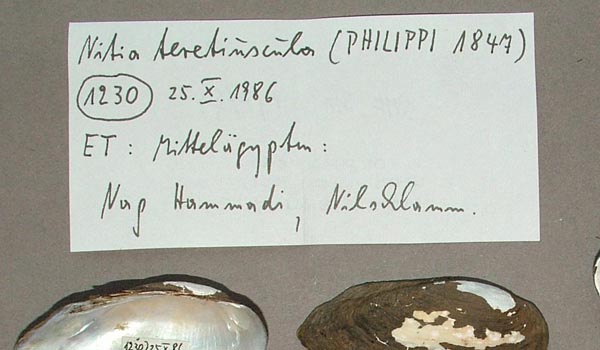 Nitia teretiúscula (PHILIPPI 1847)
1230 25.X.1986
ET: Mittelägypten:
Nag Hammadi, Nilschlamm.
1230/25 X 86